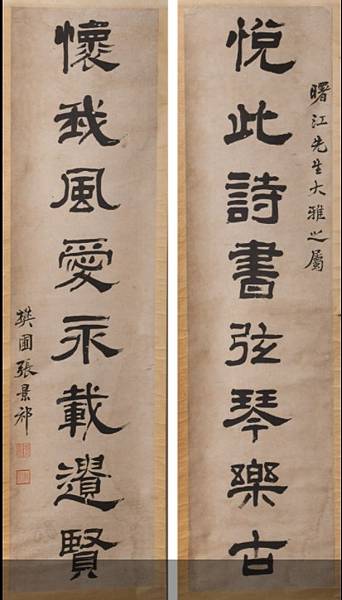 曙江先生大雅之屬
悅此詩書弦琴樂古
懷我風愛永載遺賢
樊圃張景祁